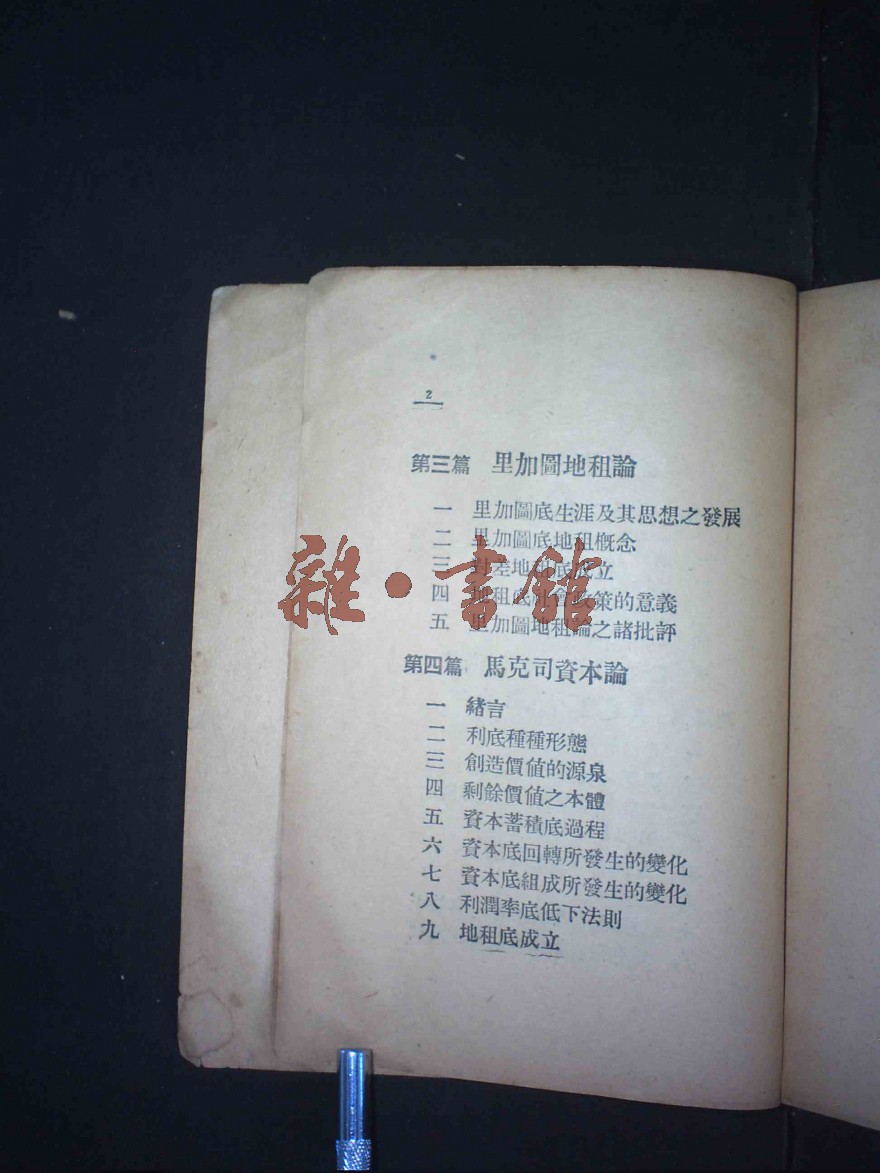 2
第三篇 里加圖地租論
一 里加圖底生涯及其思想之發展
二 里加圖底地租概念
三 對差地租底成立
四 地租底社會政策的意義
五 里加圖地租論之諸批評
雜·書館
第四篇 馬克司資本論
一 緒言
二 利底種種形態
三 創造價值的源泉
四 剩餘價值之本體
五 資本蓄積底過程
六 資本底回轉所發生的變化
七 資本底組成所發生的變化
八 利潤率底低下法則
九 地租底成立